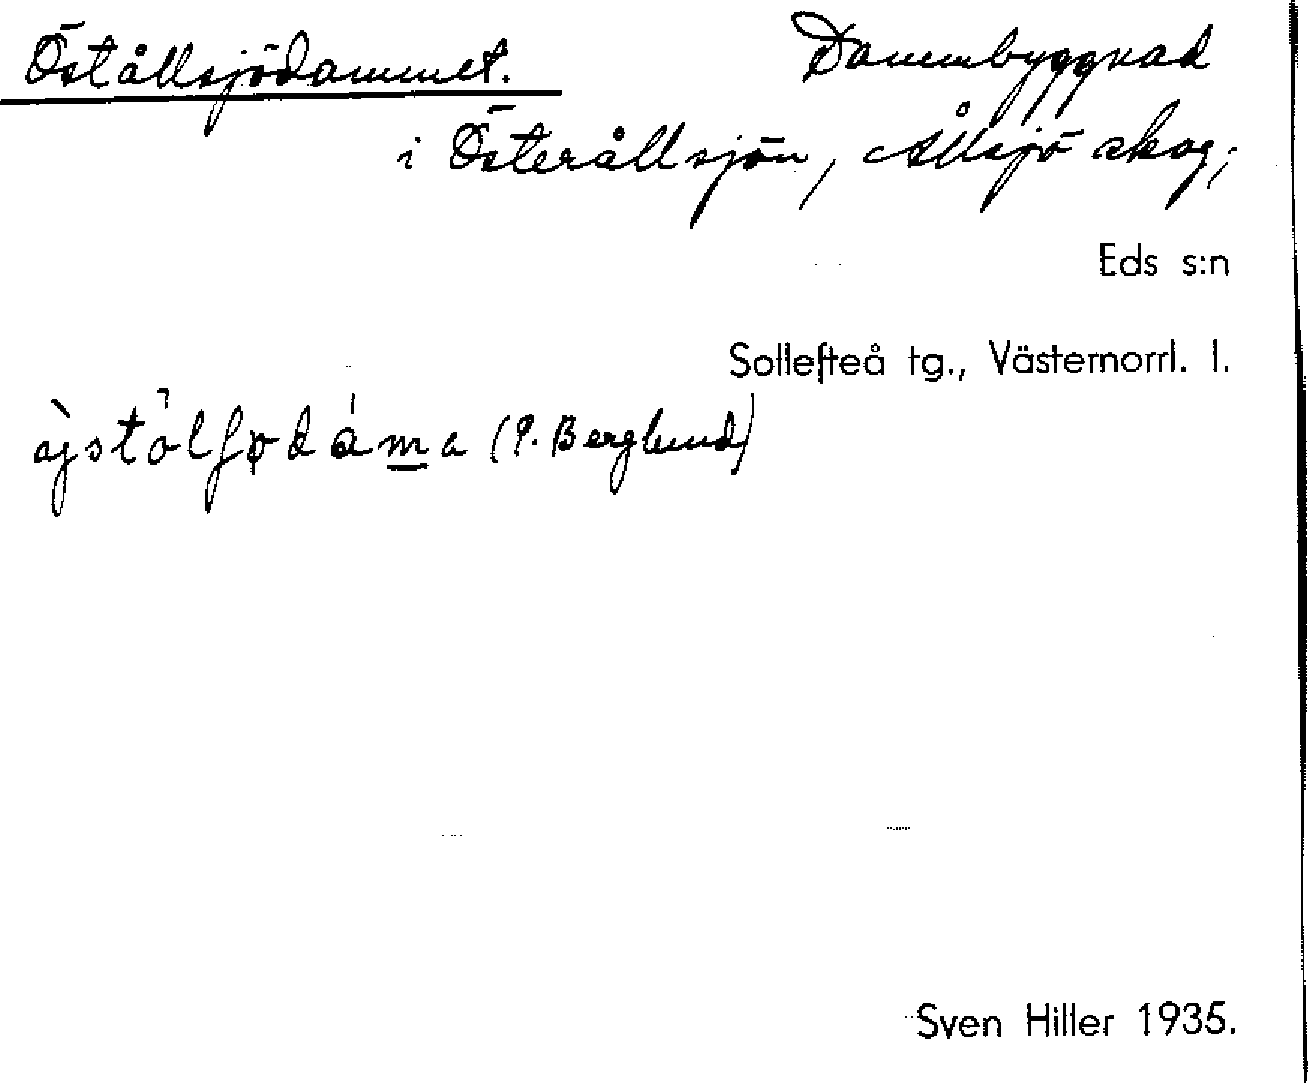 Östållsjödammet. Dammbyggnad
i Österållsjön, Ållsjö skog,
Eds s:n
Sollefteå tg., Västernorrl. l.
(P. Berglund)
Sven Hiller 1935.